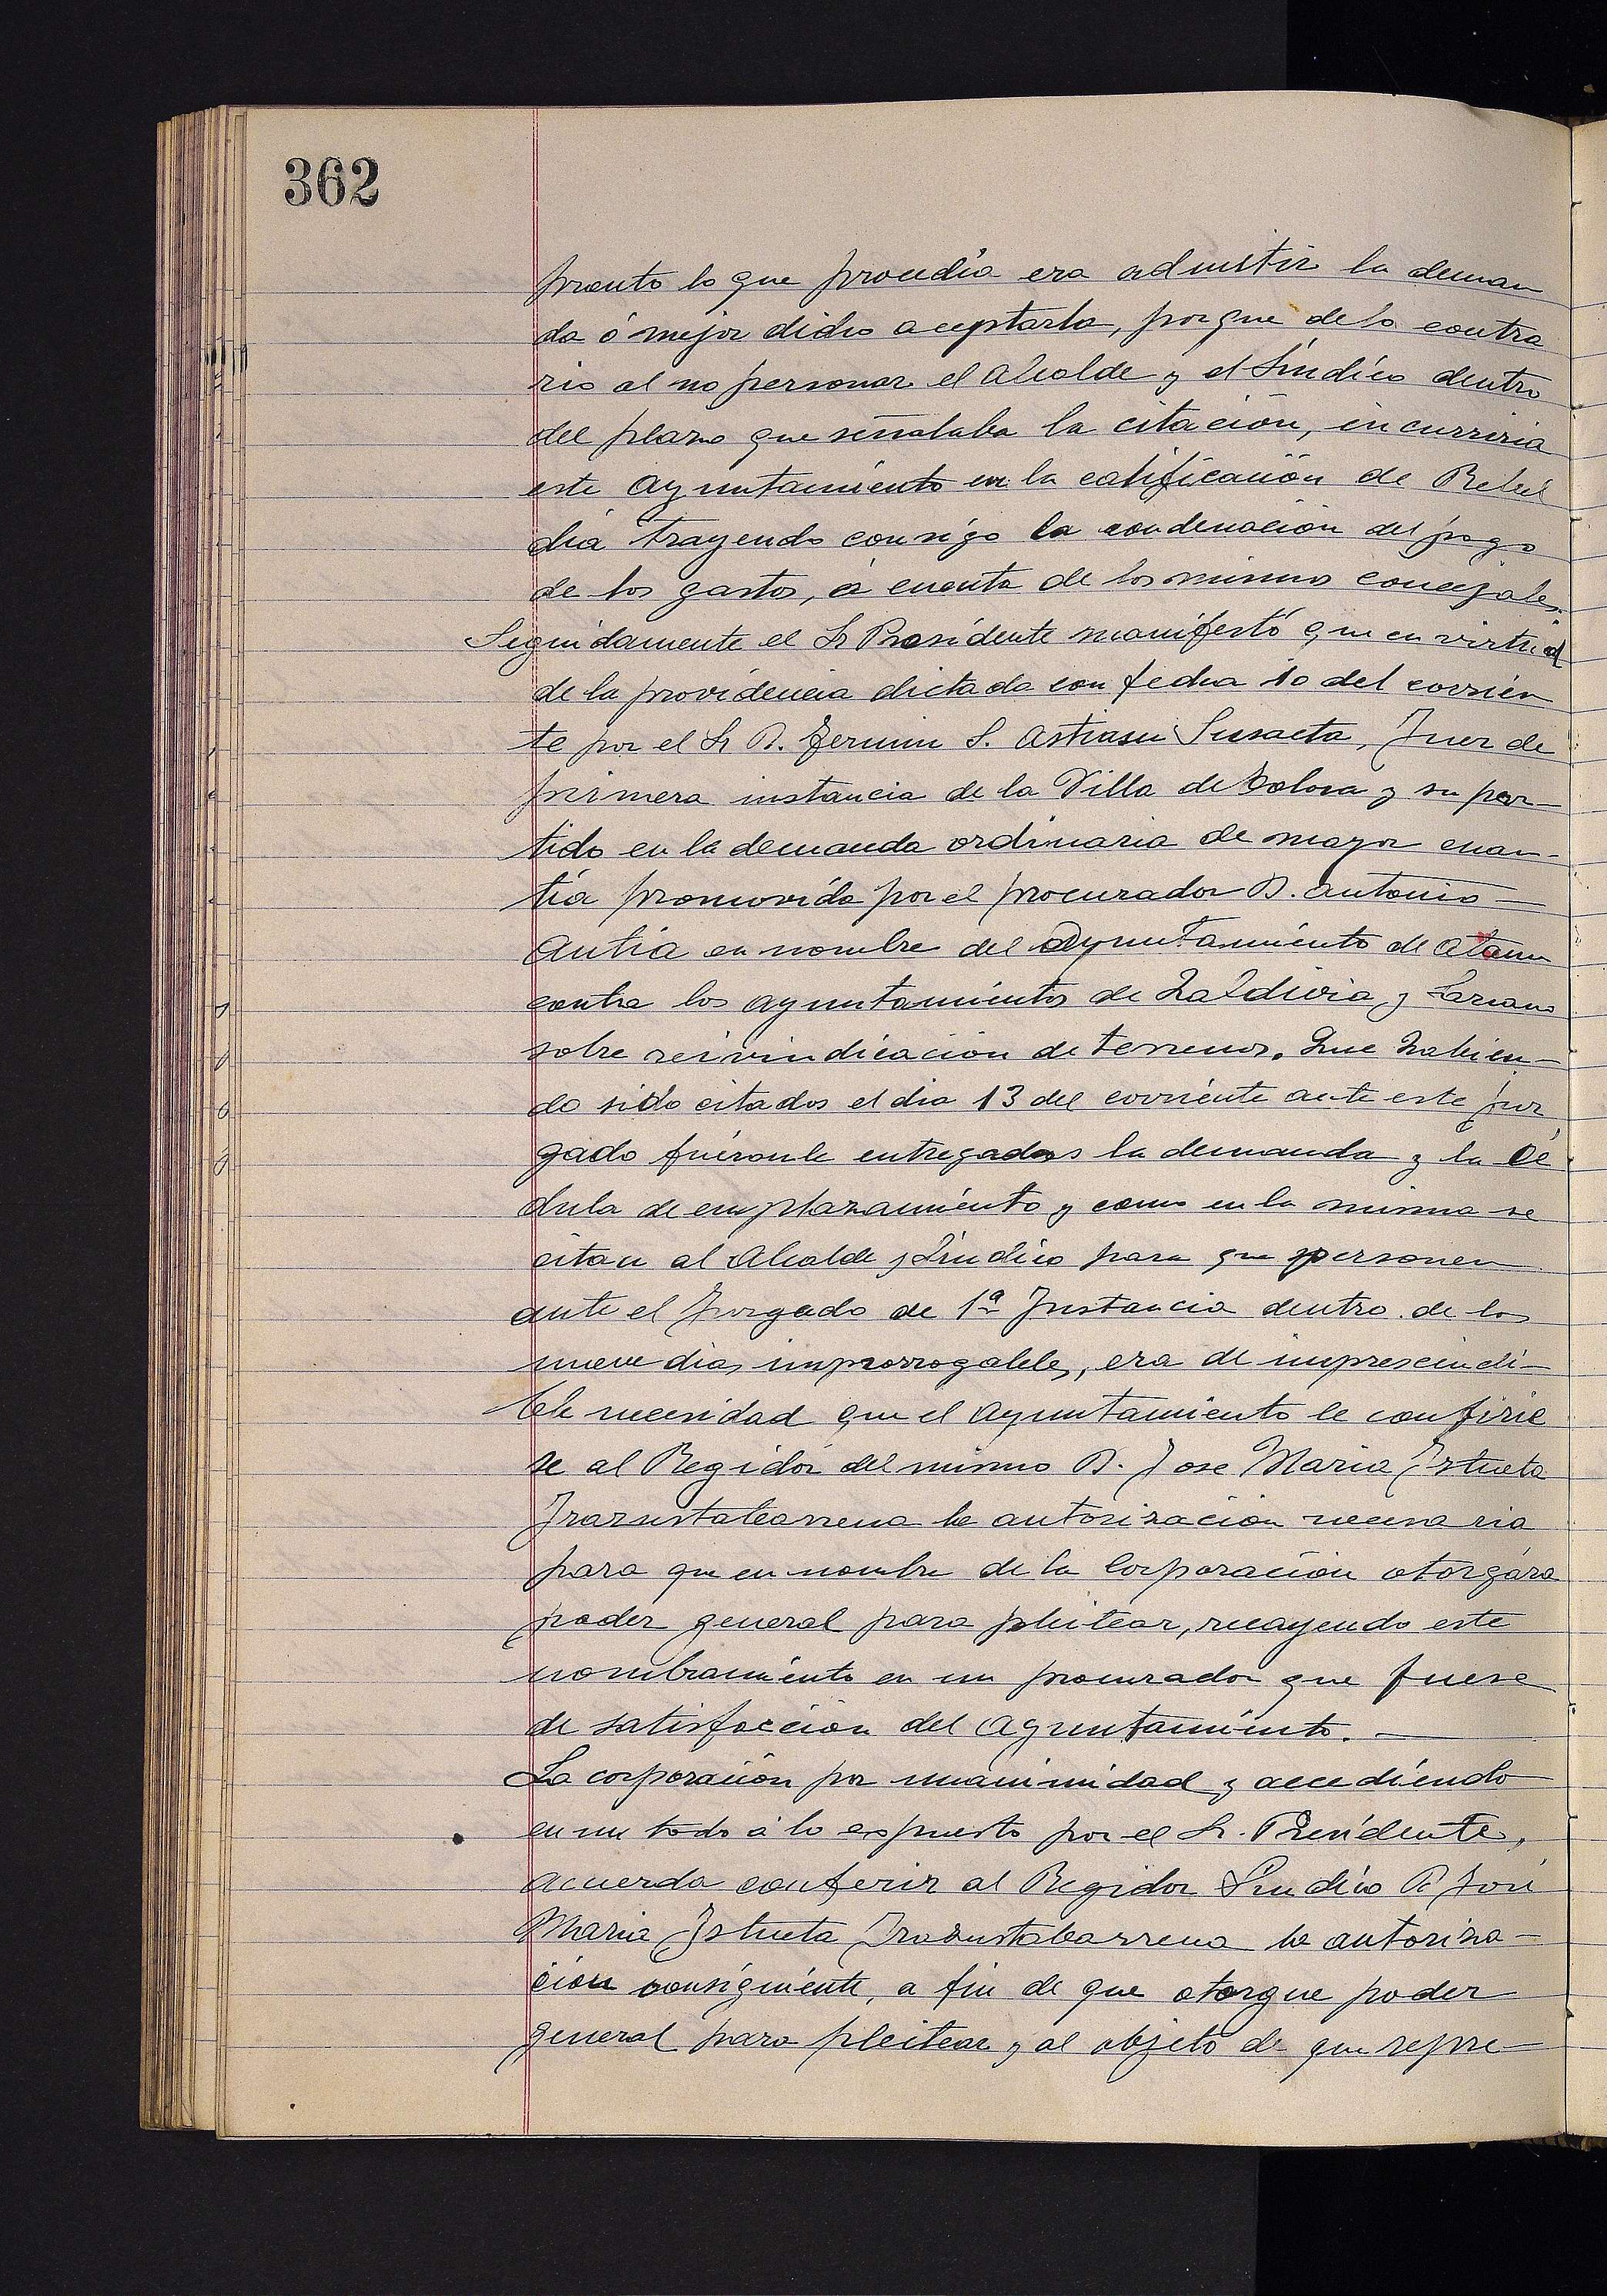 362
pronto lo que procedia era admitir la deman
da ó mejor dicho aceptarla, porque de lo contra
rio al no personar el Alcalde y el Síndico dentro
del plazo que señalaba la citación, incurriria
este Ayuntamiento en la calificación de Rebel
dia trayendo consigo la condenación del pago
de los gastos, á cuenta de los mismos concejales.
Seguidamente el Sr Presidente manifestó que en virtud
de la providencia dictada con fecha 10 del corrien
te por el Sr D. Fermin S. Astiasu Susaeta, Juez de
primera instancia de la Villa de Tolosa y su par-
tido en la demanda ordinaria de mayor cuan-
tia promovida por el procurador D. Antonio
Antia en nombre del Ayuntamiento de Ataun
contra los Ayuntamientos de Zaldivia y Lazcano
sobre reivindicacion de terrenos. Que habien-
do sido citados el dia 13 del corriente ante este juz
gado fuéronle entregadas la demanda y la Cé
dula de emplazamiento y como en la misma se
citan al Alcalde y Síndico para que personen
ante el Juzgado de 1ª Instancia dentro de los
nueve dias improrrogables, era de imprescindi-
ble necesidad que el Ayuntamiento le confirie
se al Regidor del mismo D. Jose Maria Istueta
Irazustabarrena la autorizacion necesaria
para que en nombre de la Corporación otorgára
poder general para pleitear, recayendo este
nombramiento en un procurador que fuese
de satisfacción del Ayuntamiento.
La corporación por unanimidad y accediendo
en un todo á lo expuesto por el Sr. Presidente,
acuerda conferir al Regidor Síndico D José
Maria Istueta Irazustabarrena la autoriza-
cion consiguiente, a fin de que otorgue poder
general para pleitear y al objeto de que repre-